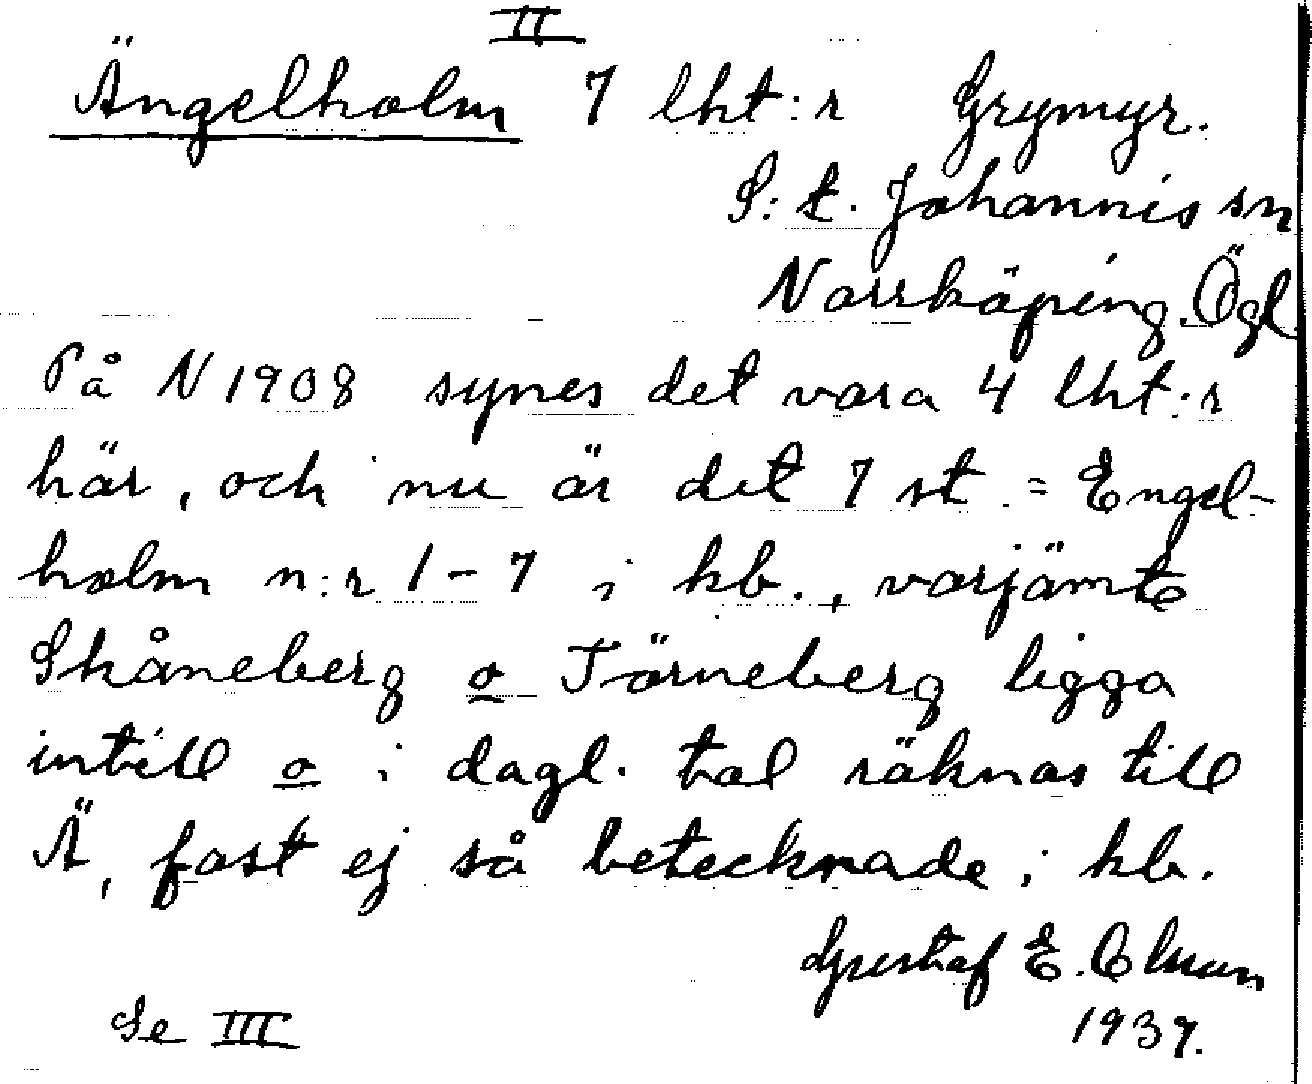 II
Ängelholm 7 lht:r Grymyr.
S:t. Johannis sn
Norrköping Ögl
På N 1908 synes det vara 4 lht:r
här, och nu är det 7 st. = Engel-
holm n:r 1-7 i kb., varjämte
Skåneberg o Törneberg ligga
intill o i dagl. tal räknas till
Ä, fast ej så betecknade i kb.
Gustaf E.
Se III 1937.